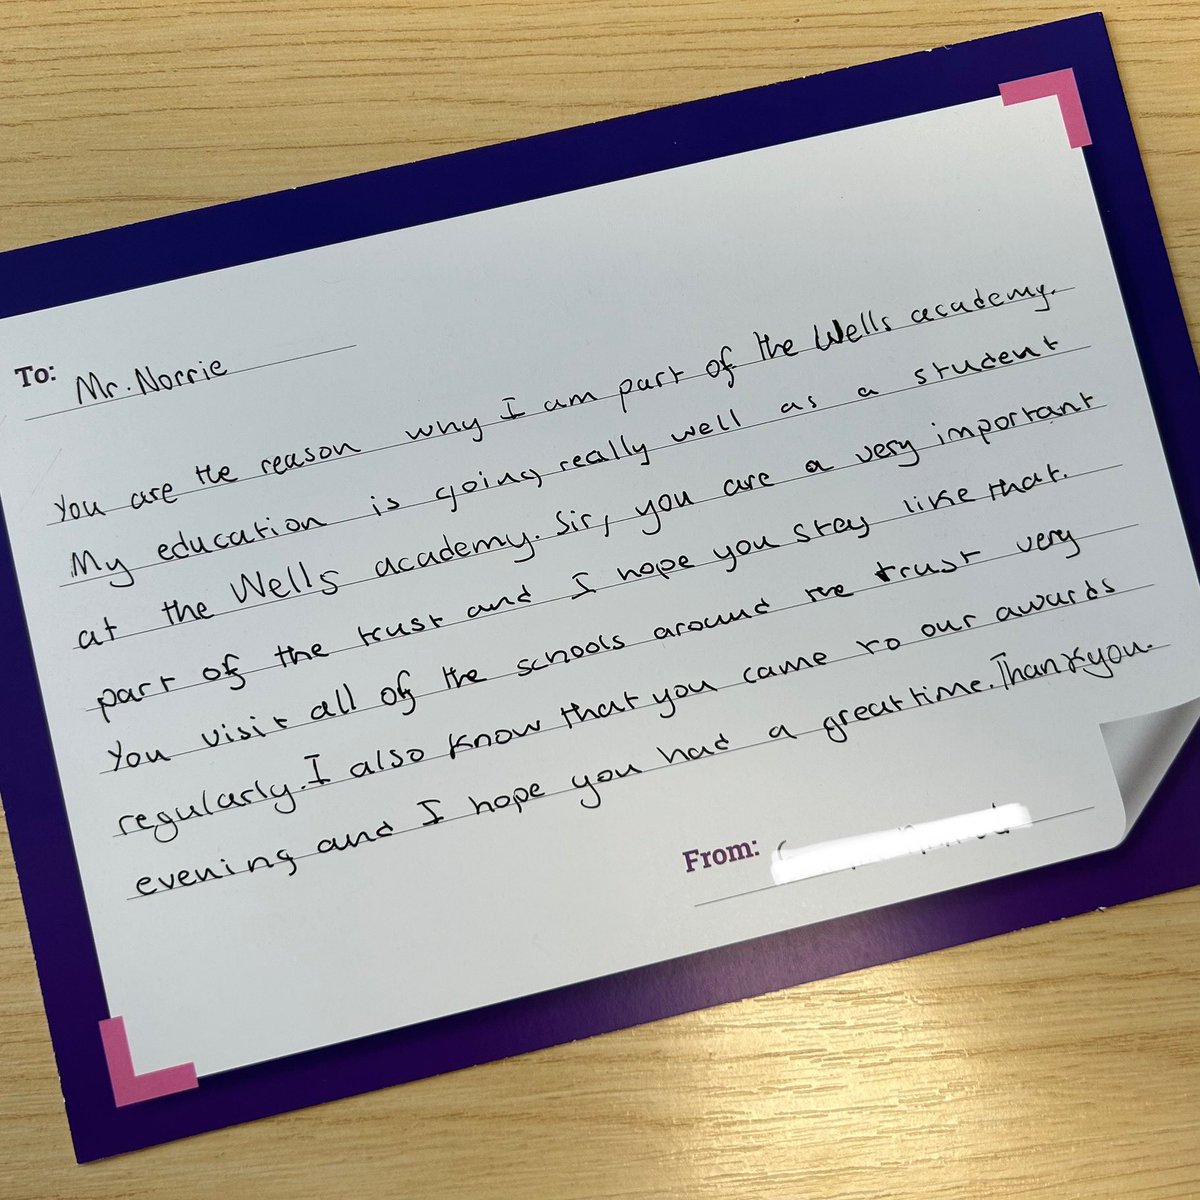 To: Mr. Norrie
You are the reason why I am part of the Wells academy.
My education is going really well as a student
at the Wells academy. Sir, you are a very important
part of the trust and I hope you stay like that.
You visit all of the schools around the trust very
regularly. I also know that you came to our awards
evening and I hope you had a great time. Thank you.
From: